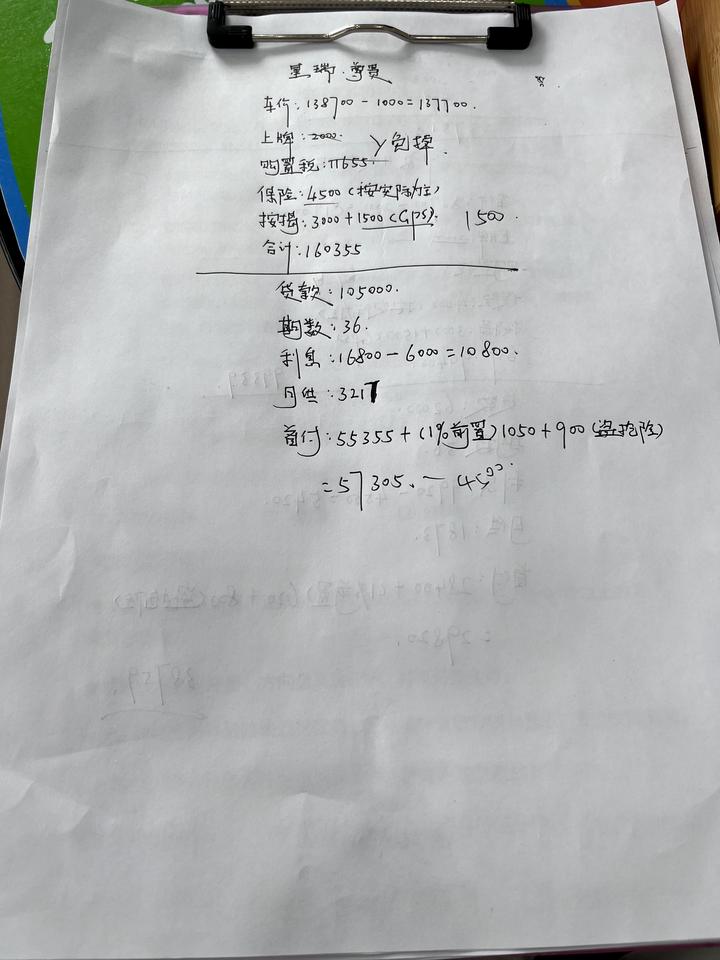 星瑞·尊贵
车价:138700-1000=137700.
上牌:2000.
购置税:11655
包掉.
保险:4500(按实际为准)
按揭:3000+1500(GPS). 1500.
合计:160355
贷款:105000.
期数:36.
利息:16800-6000=10800.
月供:3217
首付:55355+(1%前置)1050+900(盗抢险)
=57305.-4500.